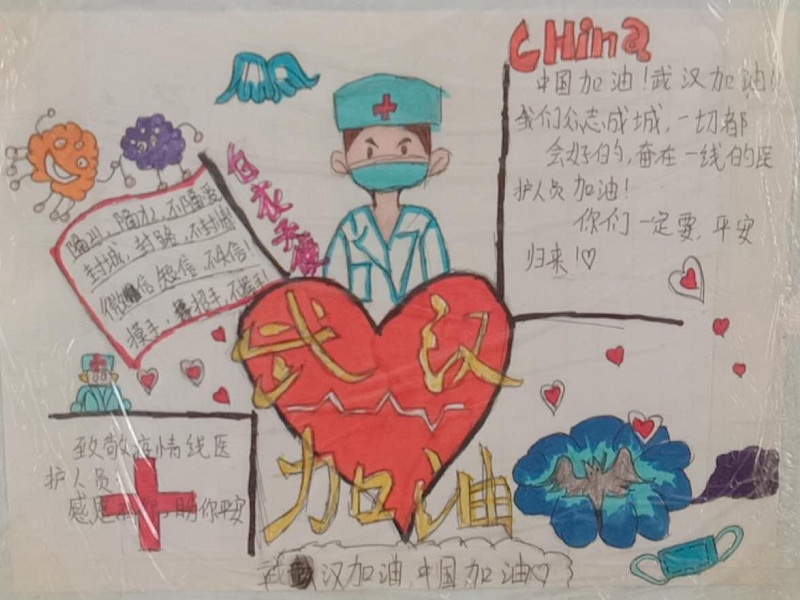 CHina
中国加油！武汉加油！
我们众志成城，一切都
会好的，奋在一线的医
护人员加油！
你们一定要，平安
归来！♡
白衣天使
隔山，隔水，不隔爱
封城，封路，不封情！
微信短信，不失信！
摸手，招手，不握手！
武汉
加油
致敬疫情线医
护人员
感恩 盼你平安
武汉加油，中国加油♡